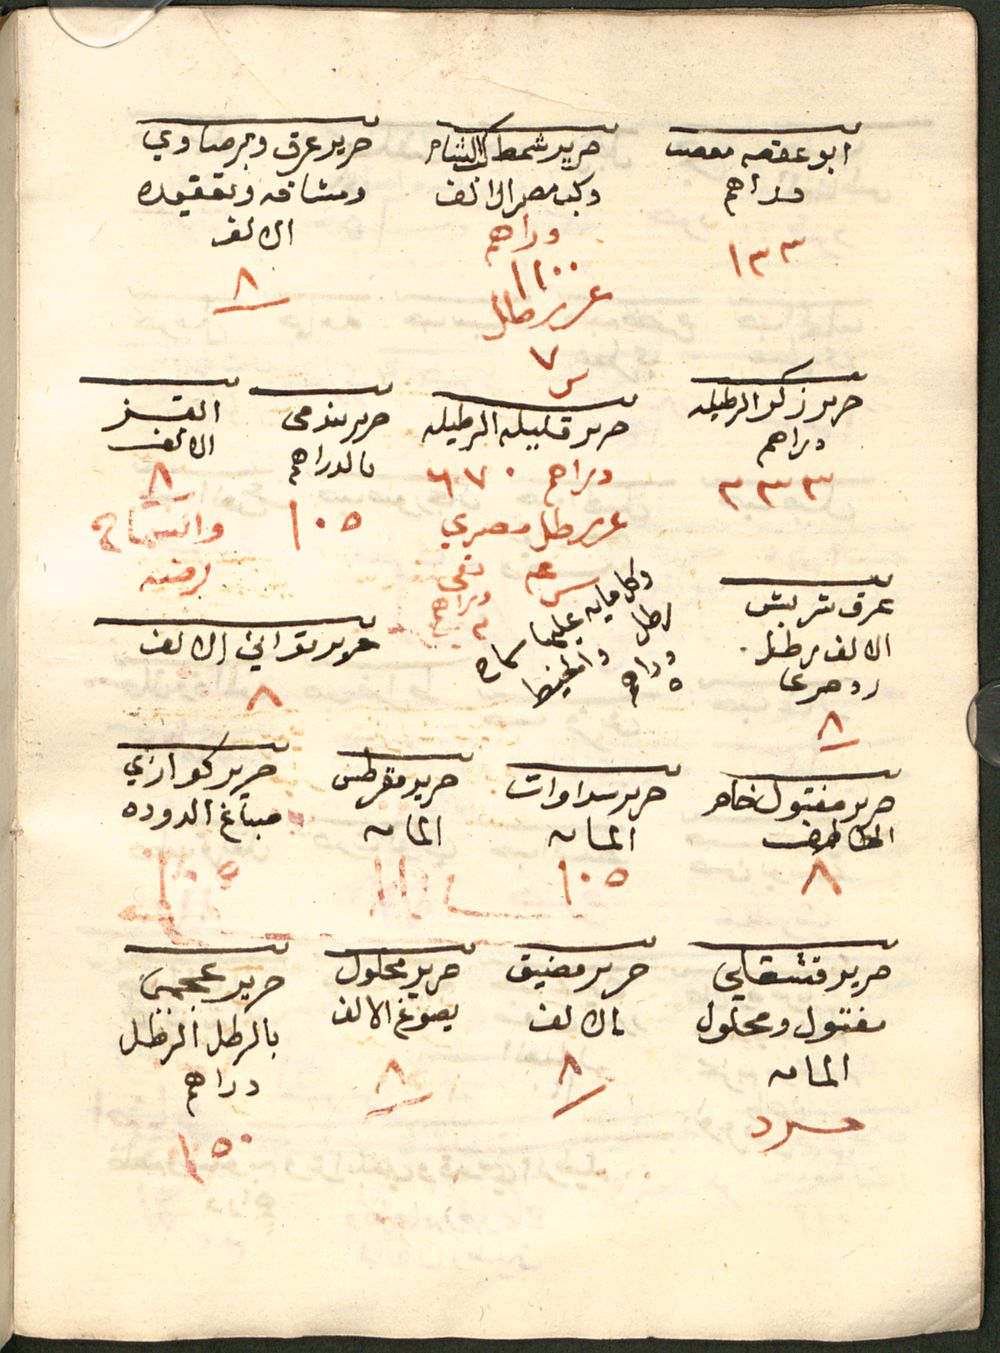 ابو عقصه معصب
دراهم
١٣٣
حرير شمط الشام
وكب مصر الالف
دراهم
١١٠٠
عن رطل
٧
حرير عرق وبرصاوي
ومشاقه وتعقيده
الالف
٨
حرير زكر الرطيله
دراهم
٣٣٣
حرير قليله الرطيله
دراهم ٦٧٠
عن رطل مصري
حرير بندمى
بالدراهم
١٠٥
القز
الالف
٨
والشماح
برضيه
وكل مايه عليها
رطل
دراهم
٥
عرق شربش
الالف برطل
٨
حرير تواني الالف
٨
حرير مفتول خام
٨
حرير سداوات
المايه
١٠٥
حرير مقرطس
المايه
حرير كوارزي
صباغ الدوده
١٠٥
حرير قشقلي
مفتول ومحلول
المايه
حرير مضيق
بالالف
٨
حرير محلول
يصوغ الالف
٨
حرير عجمي
بالرطل الرطل
دراهم
١٥٠